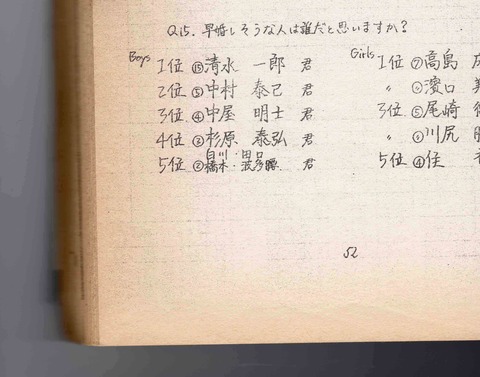 Q15. 早婚しそうな人は誰だと思いますか?
Boys Girls
1位 ⑮清水 一郎 君 1位 ⑦高島
2位 ⑤中村 泰己 君 〃 〃濱口
3位 ④中屋 明士 君 3位 ⑤尾崎
4位 ③杉原 泰弘 君 〃 川尻
5位 ②白川・田口 橋本・波多 君 5位 ④住
52